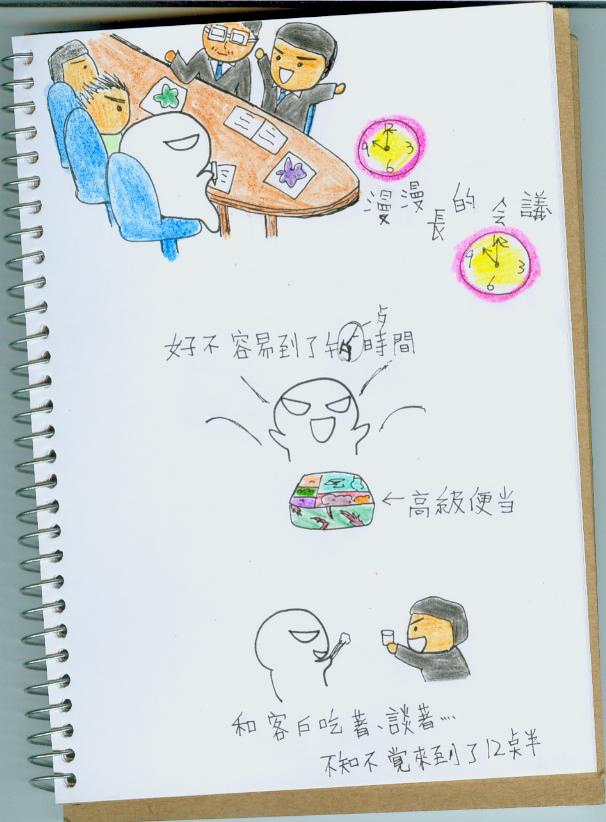 9 3
6
漫漫長的会議
9 3
6
歺
好不容易到了午時間
←高級便当
和客戶吃著、談著…
不知不覚來到了12点半